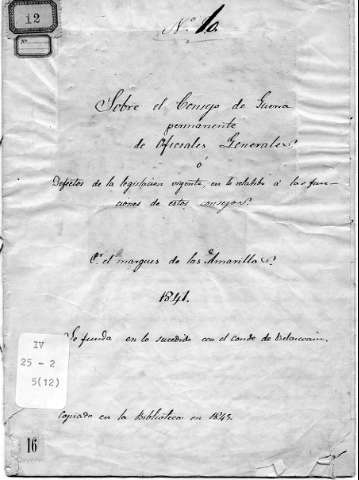 12
Nº
Nº 10.
Sobre el Consejo de Guerra
permanente
de Oficiales Generales.
ó
Defectos de la legislacion vigente, en lo relativo á las fun-
ciones de estos consejos.
Pr el marques de las Amarillas.
1841.
Se funda en lo sucedido con el conde de Belascoain.
copiado en la Biblioteca en 1845.
IV
25 - 2
5(12)
16